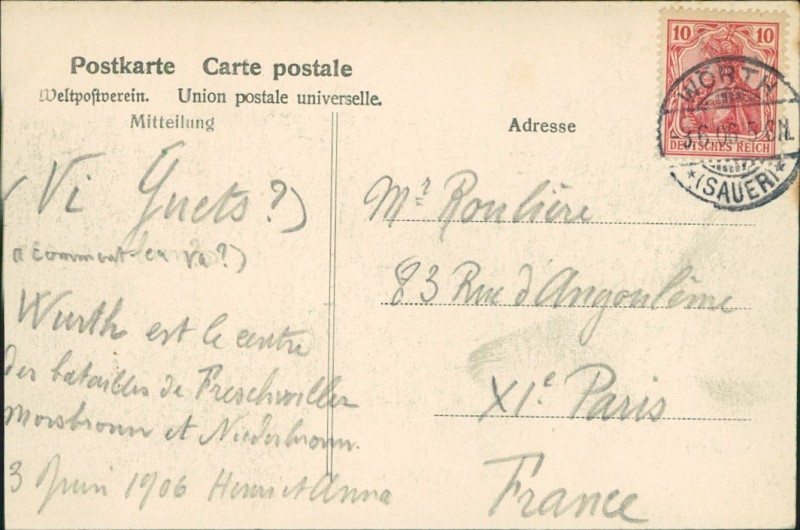 Postkarte Carte postale
Weltpostverein. Union postale universelle.
Mitteilung
(Vi Guets?)
(Comment ça va?)
Wurth est le centre
des batailles de Freschwiller
Morsbronn et Niederbronn.
3 Juin 1906 Henri et Anna
Adresse
Mr Roulière
83 Rue d'Angoulême
XIe Paris
France
10 10
DEUTSCHES REICH
WÖRTH
-3.6.06. 5-6N.
*(SAUER)*